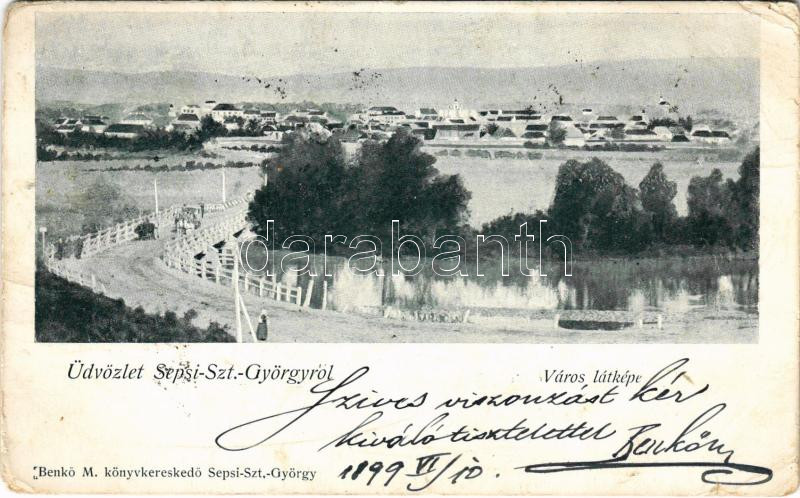 darabanth
Üdvözlet Sepsi-Szt.-Györgyről
Város látképe
Szives viszonzást kér
kiváló tisztelettel
1899 VI/10.
Benkö M. könyvkereskedő Sepsi-Szt.-György